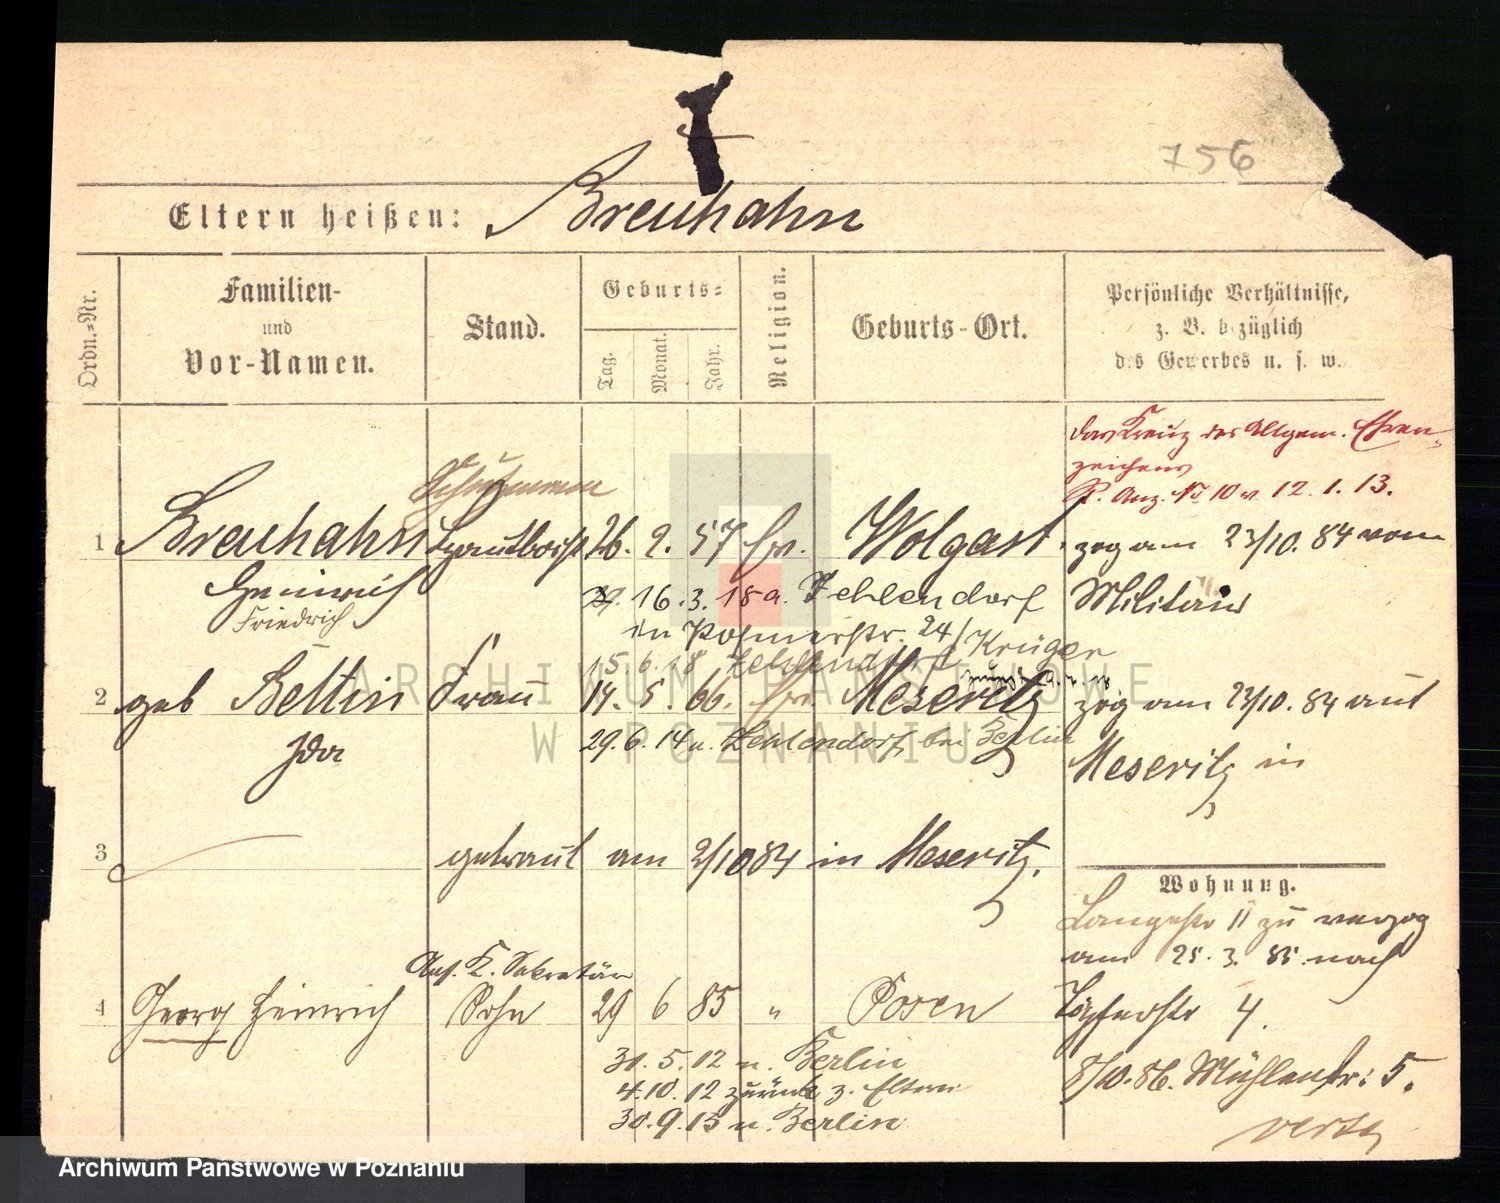 756
Eltern heißen: Breuhahn
Ordn.=Nr.
Familien-
und
Vor-Namen.
Stand.
Geburts=
Tag.
Monat.
Jahr.
Religion.
Geburts-Ort.
Persönliche Verhältnisse,
z. B. bezüglich
des Gewerbes u. s. w.
das Kreuz des Allgem. Ehren-
zeichens
P. Anz. No 10 v. 12. 1. 13.
Schutzmann
1 Breuhahn 26. 2. 57 Ev. Wolgast zog am 23/10. 84 vom
Heinrich 16. 3. 18 a. Zehlendorf Militair
Friedrich
in Posenerstr. 24/ Krüger
15. 6. 18 Zehlendorf
2 geb Bettin Frau 14. 5. 66. Ev. Meseritz zog am 23/10. 84 aus
Ida 29. 6. 14 n. Zehlendorf bei Berlin Meseritz in
3 getraut am 2/10 84 in Meseritz.
Wohnung.
Langestr 11 zu verzog
am 25. 3. 85 nach
Sekretär
4 Georg Heinrich Sohn 29 6 85 " Posen Töpferstr 4.
30. 5. 12 n. Berlin
8/10. 86. Mühlenstr: 5.
4. 10. 12 zurück z. Eltern
30. 9. 15 n. Berlin
verte
ARCHIWUM PAŃSTWOWE
W POZNANIU
Archiwum Państwowe w Poznaniu